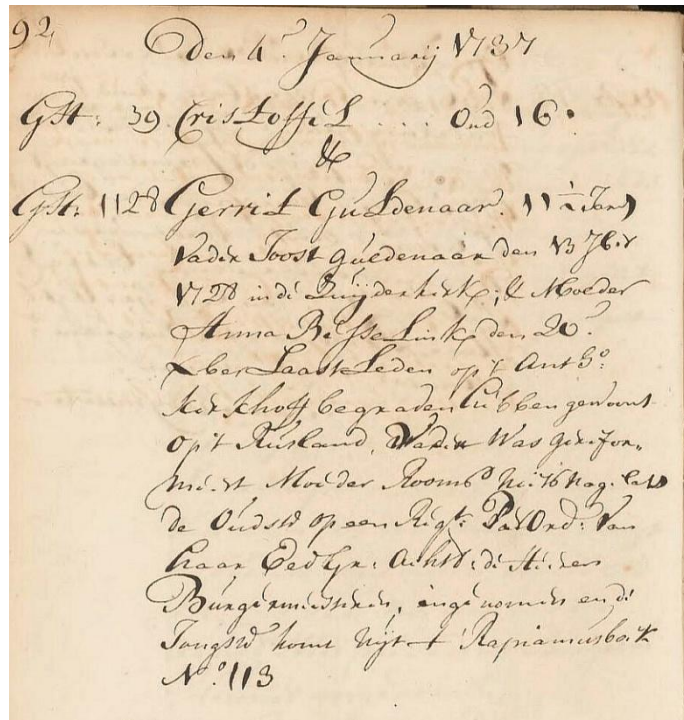 92
den 4.e Januarij 1737
GSt: 39 CristoffeL ... Oud 16.
&
GSt: 1128 Gerrit GuLdenaar. 11 1/2 Jaar
Vader Joost guldenaar den 13 7b.r
1728 in de Zuijderkerk; & Moeder
Anna BesseLink den 20.
Xber LaastLeden op 't Anth.o
kerkhoff begraven hebben gewoont
op 't Rusland, Vader Was gerefor„
meert Moeder Rooms niets nagelaten
de Oudste op een Pr Ord: Van
haar Ed: Achtb: de Heeren
Burgermeesteren, ingenomen en de
Jongste komt uijt 't Rapiamusboek
N.o 113